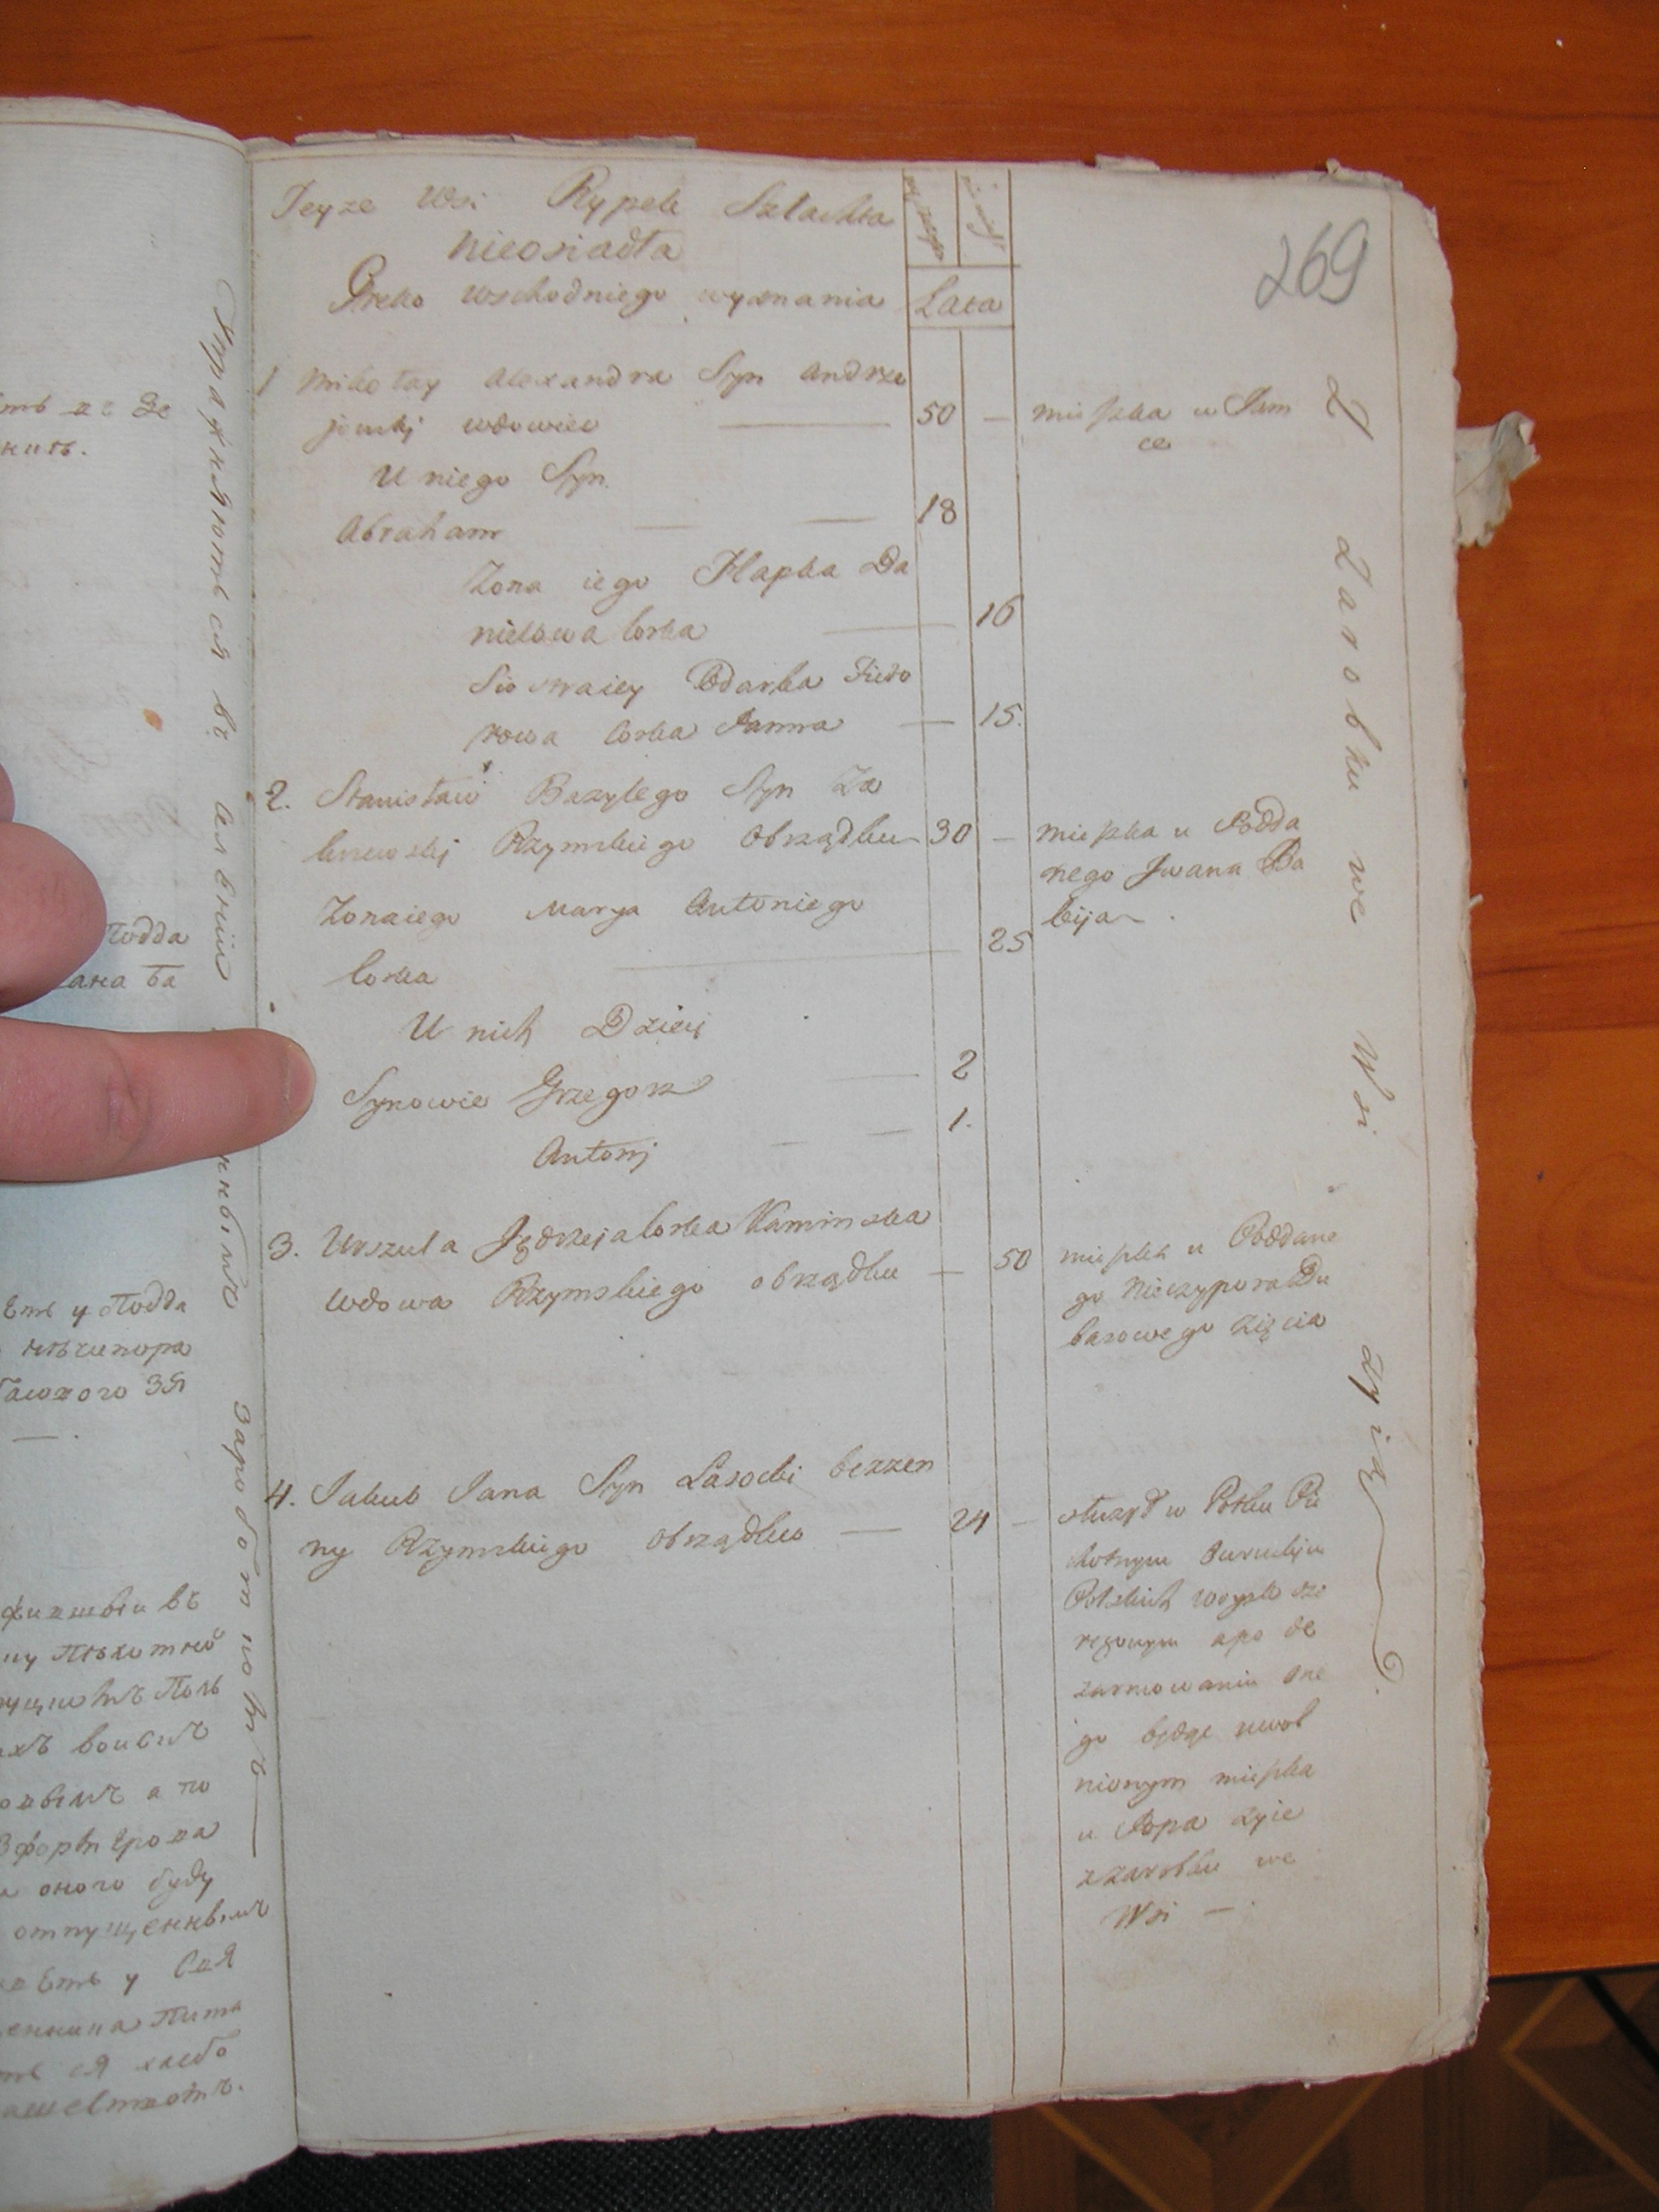 269
Teyze Wsi Rypek Szlachta
nieosiadła
Greko wschodniego wyznania
Lata
1 Mikołay Alexandra Syn Andrze
jowskj wdowiec — 50 — mieszka w Jam
ce
U niego Syn
Abraham — — 18
Zona iego Hapka Da
nielowa Corka — 16
Siostraiey Odarka Fiedo
rowa Corka Panna — 15.
2. Stanisław Bazylego Syn Za
krzewskj Rzymskiego Obrządku 30 — mieszka u Podda
nego Jwana Ba
bija
Zonaiego Marya Antoniego
Corka — 25
U nich Dzieci
Synowie Grzegorz — 2
Antonj — — 1.
3. Urszula Jędrzeja Corka Kaminska
wdowa Rzymskiego obrządku — 50
mieszka u Poddane
go Nieczypora Du
basowego zięcia
4. Jakub Jana Syn Lasocki bezzen
ny Rzymskiego obrządku — 24 —
służył w Połku Pie
chotnym
Polskich woysk sze
regowym a po de
zarmowaniu one
go będąc uwol
nionym mieszka
u Popa żyie
z zarobku we
Wsi —
Z Zarobku we Wsi żyią
Упражняются въ
заработкомъ
Подда
ана Ба
етъ у Подда
нѣчипора
баюхого Зя
ну Пѣхотной
Поль
хъ воискъ
а по
оного буду
отпущеннымъ
етъ у Свя
енника Пита